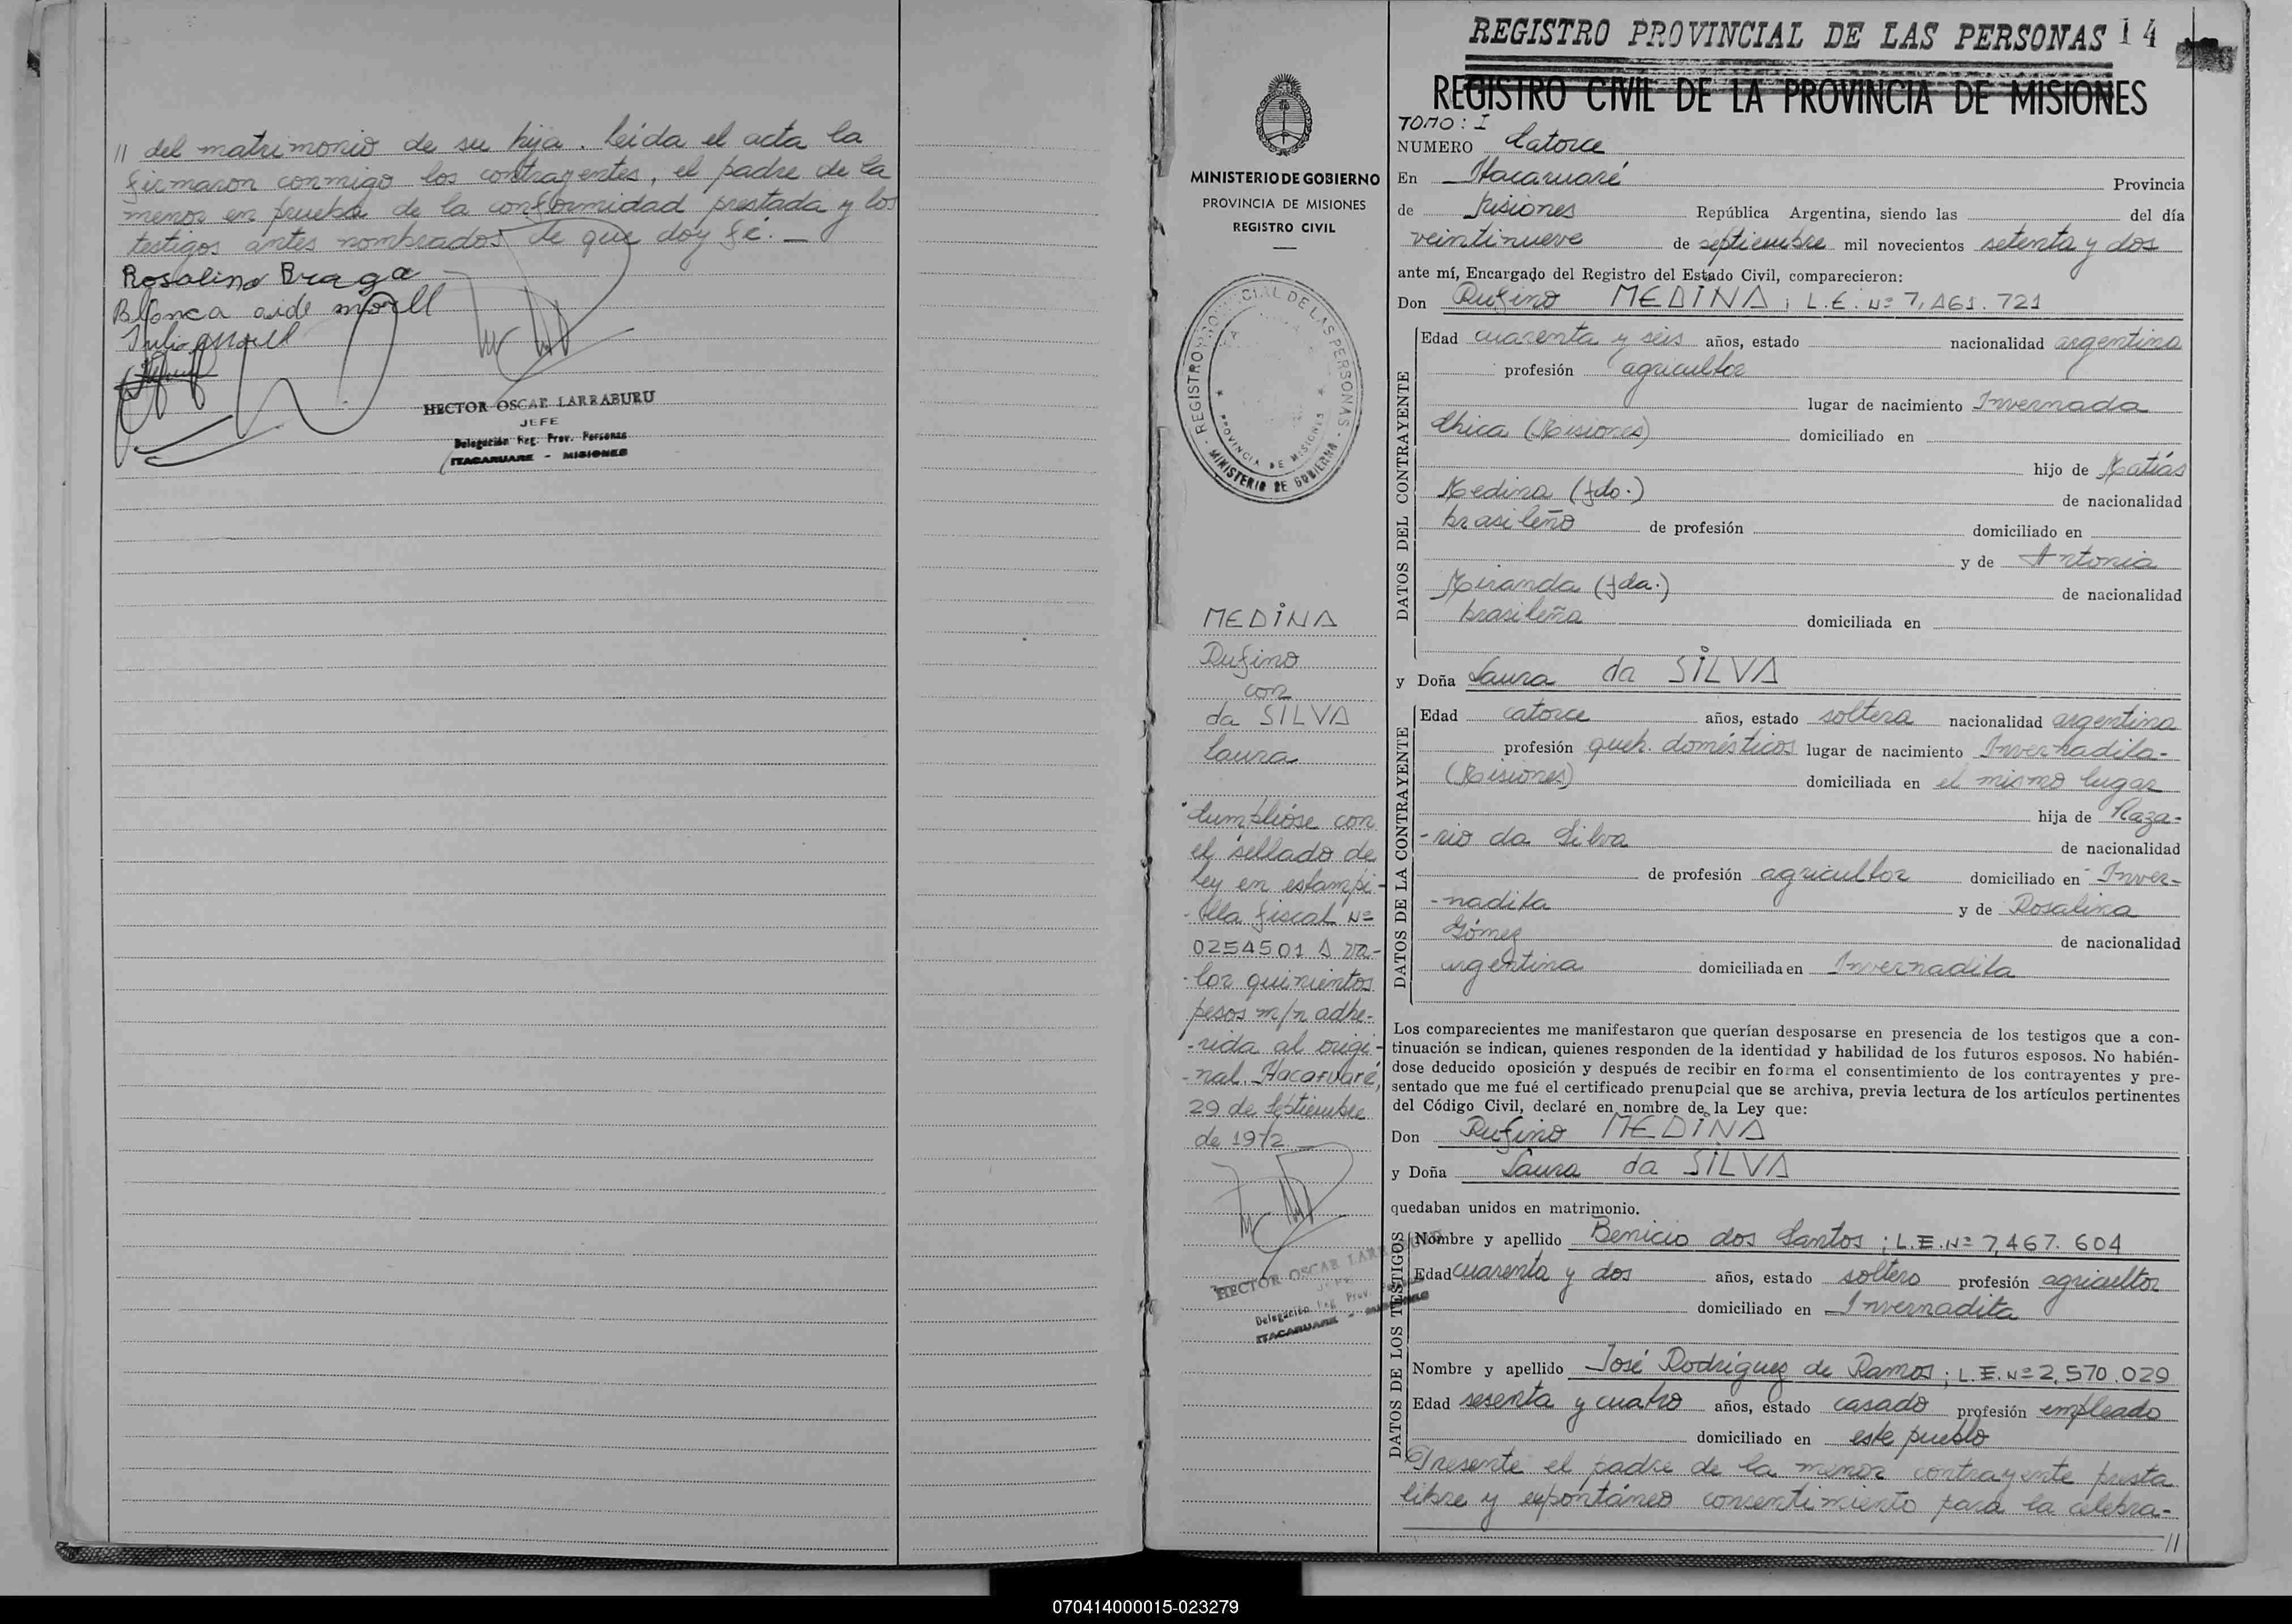 // del matrimonio de su hija. Leída el acta la
firmaron conmigo los contrayentes, el padre de la
menor en prueba de la conformidad prestada y los
testigos antes nombrados de que doy fé. —
Rosalino Braga
Blanca aide morll
Julio morell
HECTOR OSCAR LARRABURU
JEFE
Delegación Reg. Prov. Personas
ITACARUARE - MISIONES
MINISTERIO DE GOBIERNO
PROVINCIA DE MISIONES
REGISTRO CIVIL
REGISTRO PROVINCIAL DE LAS PERSONAS
PROVINCIA DE MISIONES
MINISTERIO DE GOBIERNO
MEDINA
Rufino
con
da SILVA
Laura
Cumplióse con
el sellado de
Ley en estampi-
-lla fiscal Nº
0254501 A va-
-lor quinientos
pesos m/n adhe-
-rida al origi-
-nal. Itacaruaré,
29 de Septiembre
de 1972. —
HECTOR OSCAR LARRABURU
JEFE
Delegación Reg. Prov. Personas
ITACARUARE - MISIONES
REGISTRO PROVINCIAL DE LAS PERSONAS 14
REGISTRO CIVIL DE LA PROVINCIA DE MISIONES
TOMO: I
NUMERO Catorce
En Itacaruaré Provincia
de Misiones República Argentina, siendo las del día
veintinueve de septiembre mil novecientos setenta y dos
ante mí, Encargado del Registro del Estado Civil, comparecieron:
Don Rufino MEDINA; L.E. Nº 7,461.721
DATOS DEL CONTRAYENTE
Edad cuarenta y seis años, estado nacionalidad argentina
profesión agricultor
lugar de nacimiento Invernada
Chica (Misiones) domiciliado en
hijo de Matías
Medina (fdo.) de nacionalidad
brasileño de profesión domiciliado en
y de Antonia
Miranda (fda.) de nacionalidad
brasileña domiciliada en
y Doña Laura da SILVA
DATOS DE LA CONTRAYENTE
Edad catorce años, estado soltera nacionalidad argentina
profesión queh. domésticos lugar de nacimiento Invernadita-
(Misiones) domiciliada en el mismo lugar
hija de Naza-
-rio da Silva de nacionalidad
de profesión agricultor domiciliado en Inver-
-nadita y de Rosalina
Gómez de nacionalidad
argentina domiciliada en Invernadita
Los comparecientes me manifestaron que querían desposarse en presencia de los testigos que a con-
tinuación se indican, quienes responden de la identidad y habilidad de los futuros esposos. No habién-
dose deducido oposición y después de recibir en forma el consentimiento de los contrayentes y pre-
sentado que me fué el certificado prenupcial que se archiva, previa lectura de los artículos pertinentes
del Código Civil, declaré en nombre de la Ley que:
Don Rufino MEDINA
y Doña Laura da SILVA
quedaban unidos en matrimonio.
DATOS DE LOS TESTIGOS
Nombre y apellido Benicio dos Santos; L.E. Nº 7,467.604
Edad cuarenta y dos años, estado soltero profesión agricultor
domiciliado en Invernadita
Nombre y apellido José Rodriguez de Ramos; L.E. Nº 2,570.029
Edad sesenta y cuatro años, estado casado profesión empleado
domiciliado en este pueblo
Presente el padre de la menor contrayente presta
libre y espontáneo concentimiento para la celebra-
//
070414000015-023279